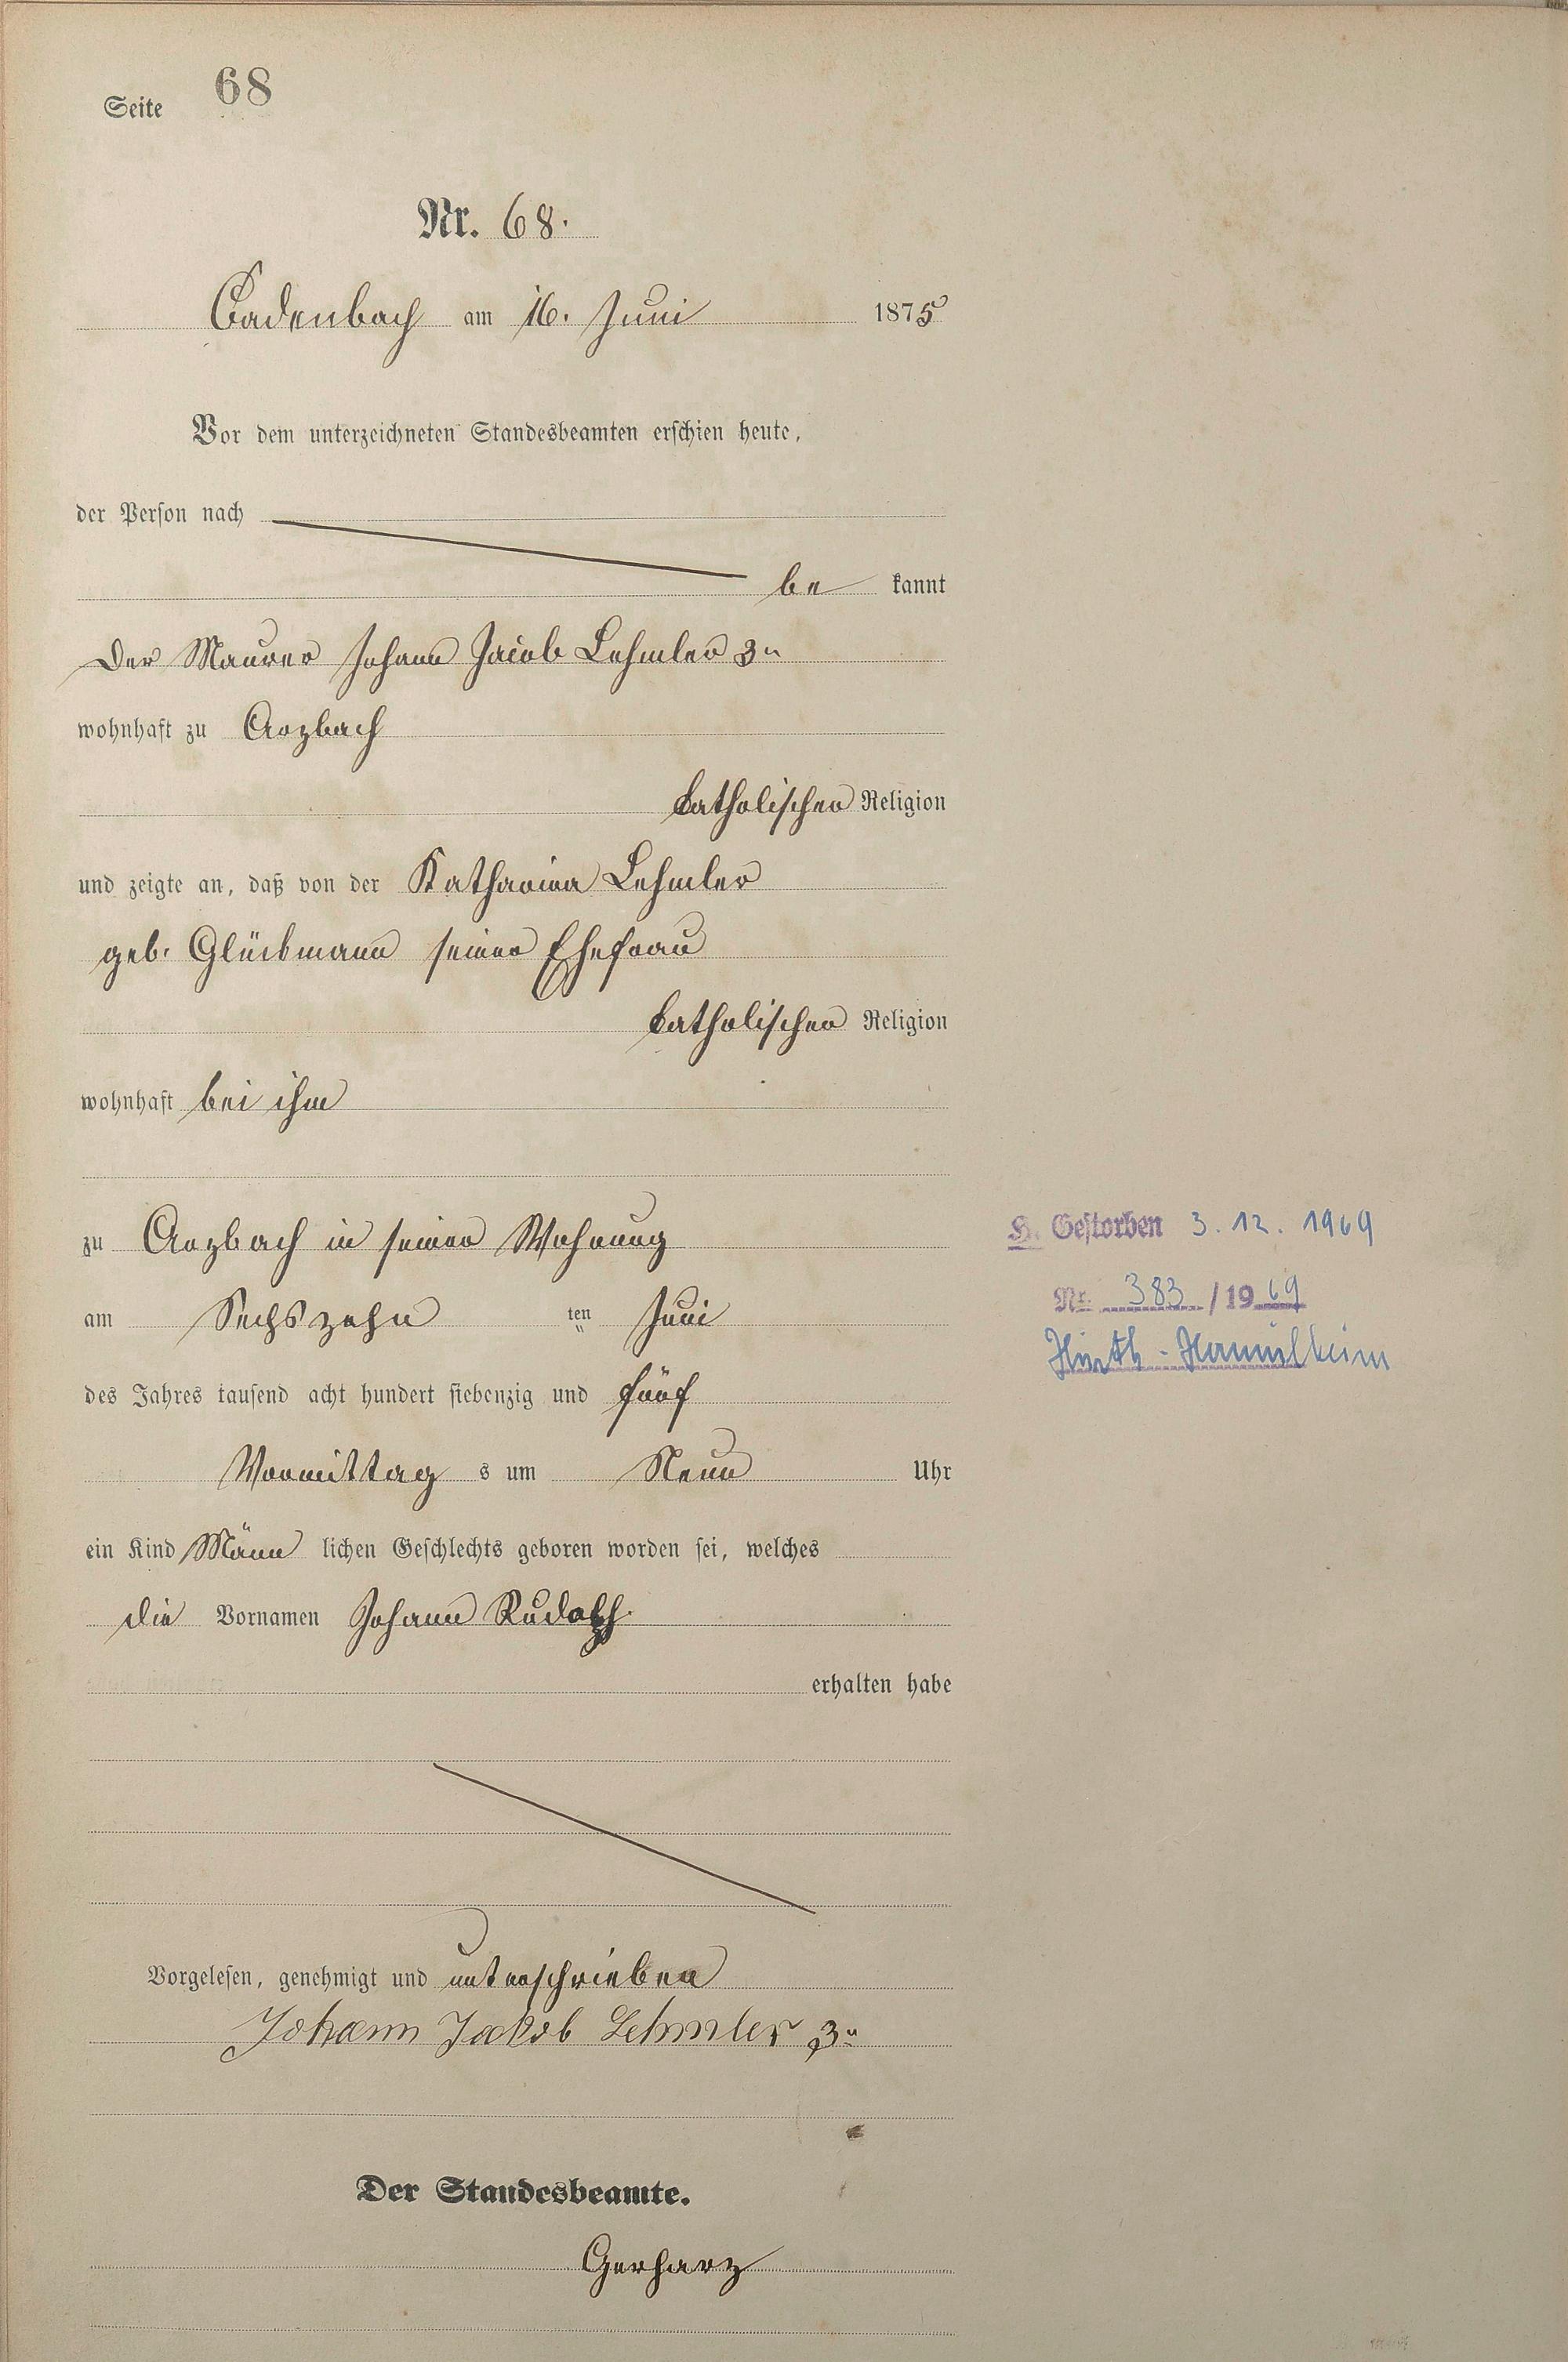 Seite 68
Nr. 68.
Cadenbach am 16. Juni 1875
Vor dem unterzeichneten Standesbeamten erschien heute,
der Person nach
be kannt
Der Maurer Johann Jacob Lehmler 3r
wohnhaft zu Arzbach
katholischer Religion
und zeigte an, daß von der Katharina Lehmler
geb. Glückmann seiner Ehefrau
katholischer Religion
wohnhaft bei ihm
zu Arzbach in seiner Wohnung
am Sechszehn ten Juni
des Jahres tausend acht hundert siebenzig und fünf
Vormittag s um Neun Uhr
ein Kind Männ lichen Geschlechts geboren worden sei, welches
die Vornamen Johann Rudolph.
erhalten habe
Vorgelesen, genehmigt und unterschrieben
Johann Jakob Lehmler 3r
Der Standesbeamte.
Gerharz
H. Gestorben 3.12.1969
Nr. 383/1969